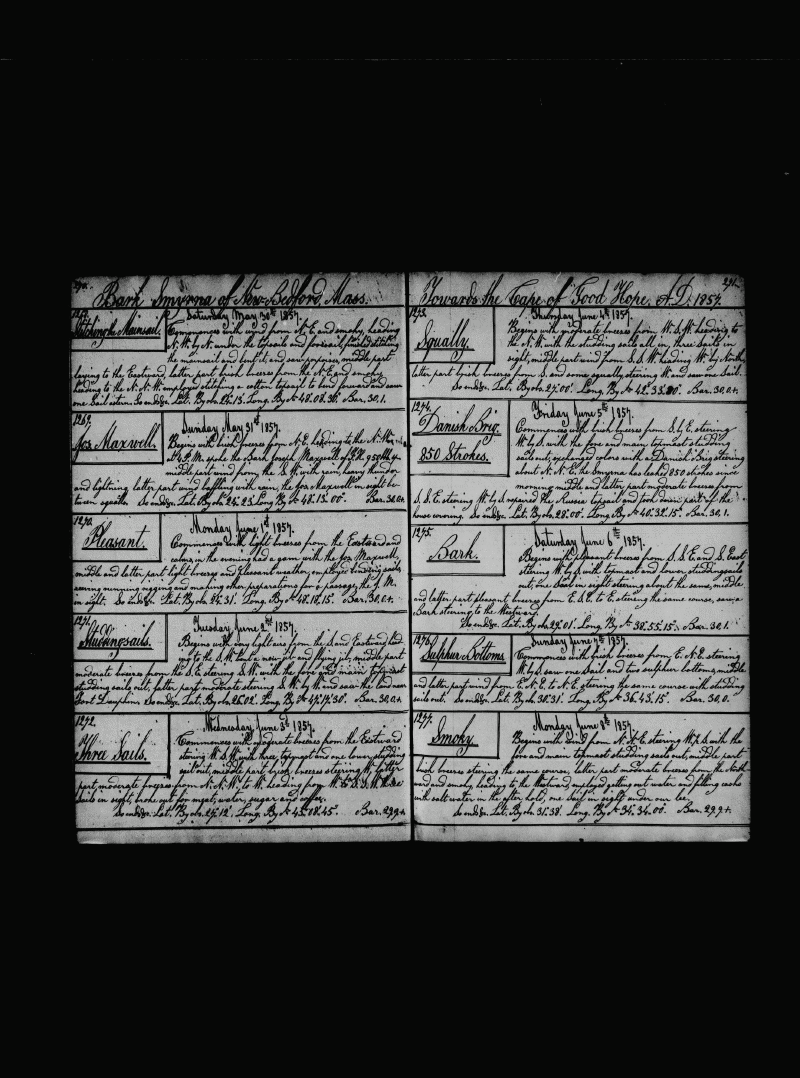 290.
Bark Smyrna of New-Bedford, Mass.
1268.
Stitching the Mainsail.
Saturday May 30th 1857.
Commences with wind from N.E. and smoky, heading
N.W. by N. under the topsails and foresail, finished stitching
the mainsail and bent it, and saw porpoises, middle part
laying to the Eastward, latter part brisk breeze from the N.E. and smoky
heading to the N.N.W. employed stitching a cotton topsail to bend forward and saw
one Sail astern. So ends &c. Lat. By obs. 25.13. Long. By Chr 48.08.30. Bar. 30,1.
1269.
Jos. Maxwell.
Sunday May 31st 1857.
Begins with brisk breezes from N.E. heading to the N.
at 4 P.M. spoke the Bark Joseph Maxwell of
middle part wind from the S.W. with rain, heavy thunder
and lightning, latter part wind baffling with rain, the Jos. Maxwell in sight
So ends &c. Lat. By obs. 25.23. Long. By Chr 48.13.00. Bar. 30,0+.
1270.
Pleasant.
Monday June 1st 1857.
Commences with light breezes from the Eastward and
calms, in the evening had a gam with the Jos. Maxwell,
middle and latter part light breezes and pleasant weather, employed bending sails,
reeving running rigging and making other preparations for a passage, the J. M.
in sight. So ends &c. Lat. By obs. 24.31. Long. By Chr 48.18.15. Bar. 30,0+.
1271.
Studdingsails.
Tuesday June 2nd 1857.
Begins with very light airs from the S. and Eastward
to the S.W. bent a new jib and flying jib, middle part
moderate breezes from the S.E. steering S.W. with the fore and main topmast
studding sails out, latter part moderate steering S.W. by W. and saw the land near
Fort Dauphin. So ends &c. Lat. By obs. 26.02. Long. By Chr 47.17.30. Bar. 30,0+.
1272.
Three Sails.
Wednesday June 3d 1857.
Commences with moderate breezes from the Eastward
steering W.S.W. with three topmast and one lower studding
sail out, middle part brisk breezes steering W. latter
part moderate breezes from N.N.W. to W. heading from
Sails in sight, broke out for meat, water, sugar and coffee.
So ends &c. Lat. By obs. 27.12. Long. By Chr 45.08.45. Bar. 29,9+.
291.
Towards the Cape of Good Hope. A.D. 1857.
1273.
Squally.
Thursday June 4th 1857.
Begins with moderate breezes from W.S.W. heading to
the N.W. with the studding sails all in, three Sails in
sight, middle part wind from S.S.W. heading W. by North,
latter part brisk breezes from S. and some squally, steering W. and saw one Sail.
So ends &c. Lat. By obs. 27.00. Long. By Chr 42.33.30. Bar. 30,0+.
1274.
Danish Brig.
850 Strokes.
Friday June 5th 1857.
Commences with brisk breezes from S. by E. steering
W. by S. with the fore and main topmast studding
sails out, exchanged colors with a Danish Brig steering
about N.N.E. the Smyrna has leaked 850 strokes since
morning, middle and latter part moderate breezes from
S.S.E. steering W. by S. repaired the Russia topsail and took down part of the
house covering. So ends &c. Lat. By obs. 28.00. Long. By Chr 40.32.15. Bar. 30,1.
1275.
Bark.
Saturday June 6th 1857.
Begins with pleasant breezes from S.S.E. and S. East
steering W. by S. with topmast and lower studding sails
out, one Sail in sight steering about the same, middle
and latter part pleasant breezes from E.S.E. to E. steering the same course, saw a
Bark steering to the Westward.
So ends &c. Lat. By obs. 29.01. Long. By Chr 38.55.15. Bar. 30,1.
1276.
Sulphur Bottoms.
Sunday June 7th 1857.
Commences with brisk breezes from E.N.E. steering
W. by S. saw one Sail and two sulphur bottoms, middle
and latter part wind from E.N.E. to N.E. steering the same course with studding
sails out. So ends &c. Lat. By obs. 30.31. Long. By Chr 36.43.15. Bar. 30,0.
1277.
Smoky.
Monday June 8th 1857.
Begins with wind from N.N.E. steering W. by S. with the
fore and main topmast studding sails out, middle part
brisk breezes steering the same course, latter part moderate breezes from the North-
ward and smoky, heading to the Westward, employed getting out water and filling casks
with salt water in the after hold, one Sail in sight under our lee.
So ends &c. Lat. By obs. 31.38. Long. By Chr 34.34.00. Bar. 29,9+.